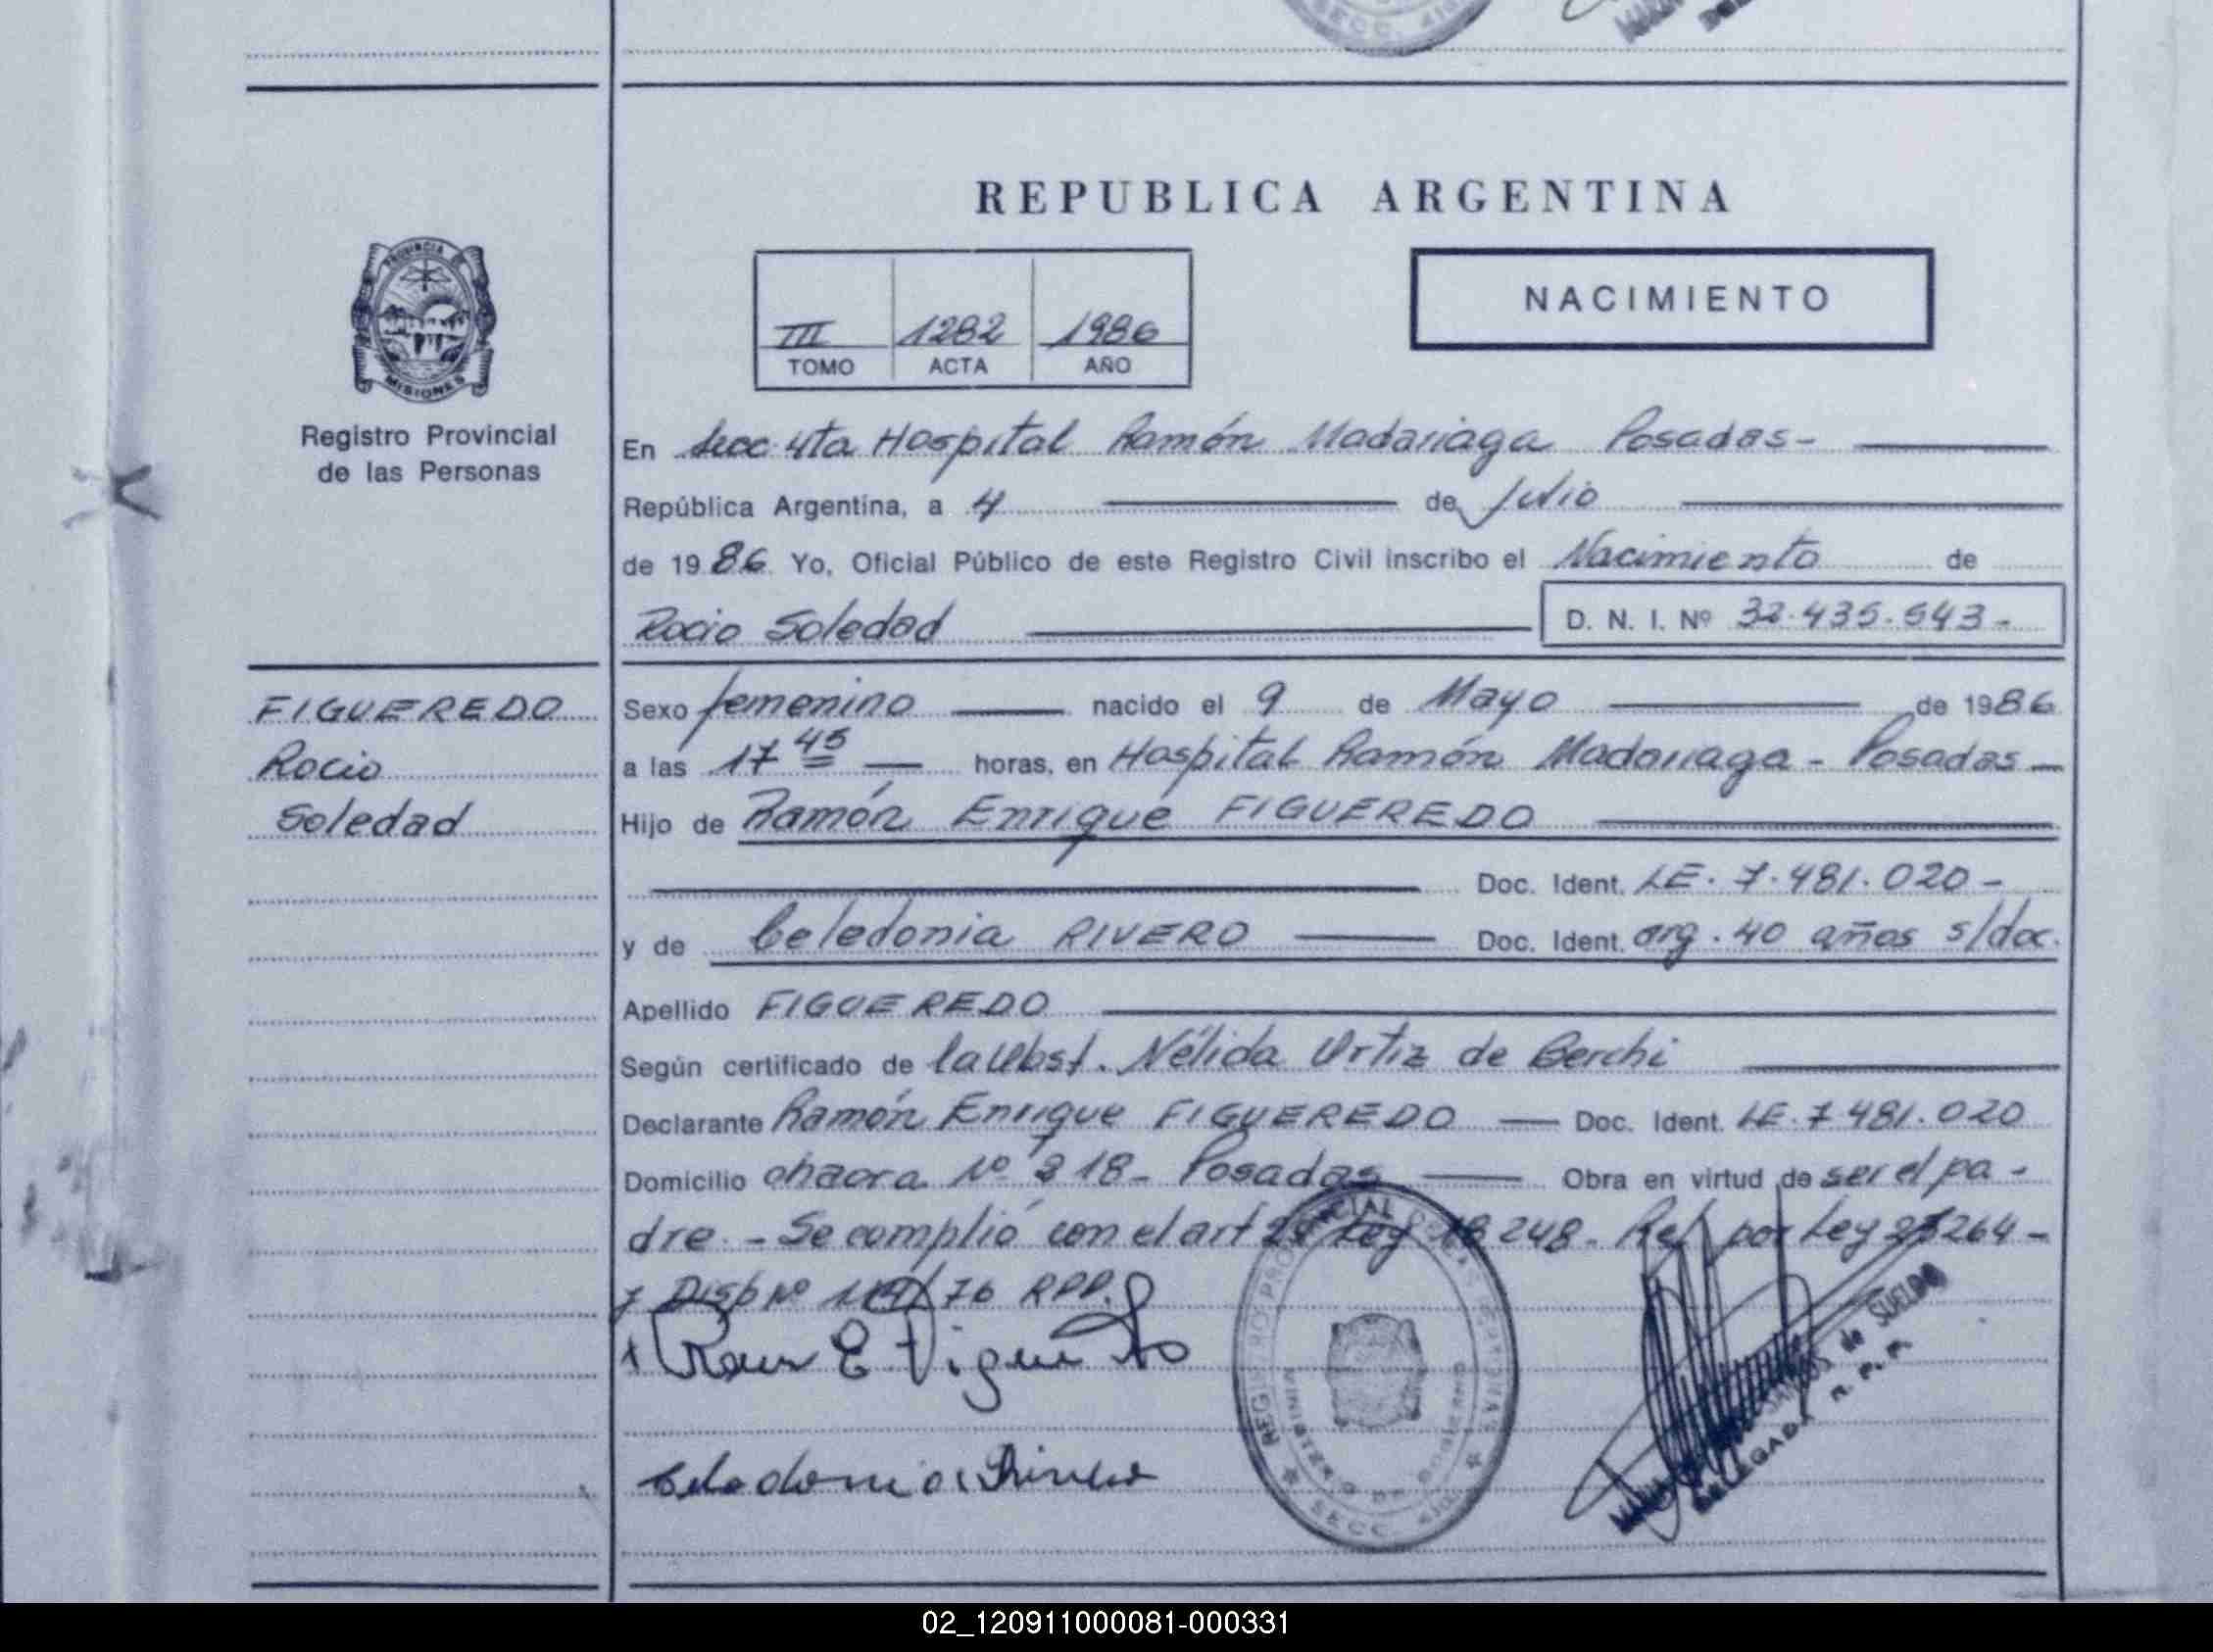 REPUBLICA ARGENTINA
NACIMIENTO
III 1282 1986
TOMO ACTA AÑO
PROVINCIA
MISIONES
Registro Provincial
de las Personas
En Secc 4ta Hospital Ramón Madariaga Posadas-
República Argentina, a 4 de Julio
de 1986 Yo, Oficial Público de este Registro Civil inscribo el Nacimiento de
Rocio Soledad D. N. I. Nº 32.435.543-
FIGUEREDO
Rocio
Soledad
Sexo femenino nacido el 9 de Mayo de 1986
a las 17 45 horas, en Hospital Ramón Madariaga - Posadas -
Hijo de Ramón Enrique FIGUEREDO
Doc. Ident. LE. 7.481.020-
y de Celedonia RIVERO Doc. Ident. arg. 40 años s/doc.
Apellido FIGUEREDO
Según certificado de la Obst. Nélida Ortiz de Berchi
Declarante Ramón Enrique FIGUEREDO Doc. Ident. LE. 7 481.020
Domicilio chacra Nº 218- Posadas Obra en virtud de ser el pa-
dre. - Se complió con el art Ley 18 248- Ref por Ley 264-
y Disp Nº /76 RPP.
Celedonia Rivero
REGISTRO PROVINCIAL DE LAS PERSONAS
MINISTERIO DE GOBIERNO
SECC. 4ta
de SUELDO
DELEGADA R. P. P.
02_120911000081-000331